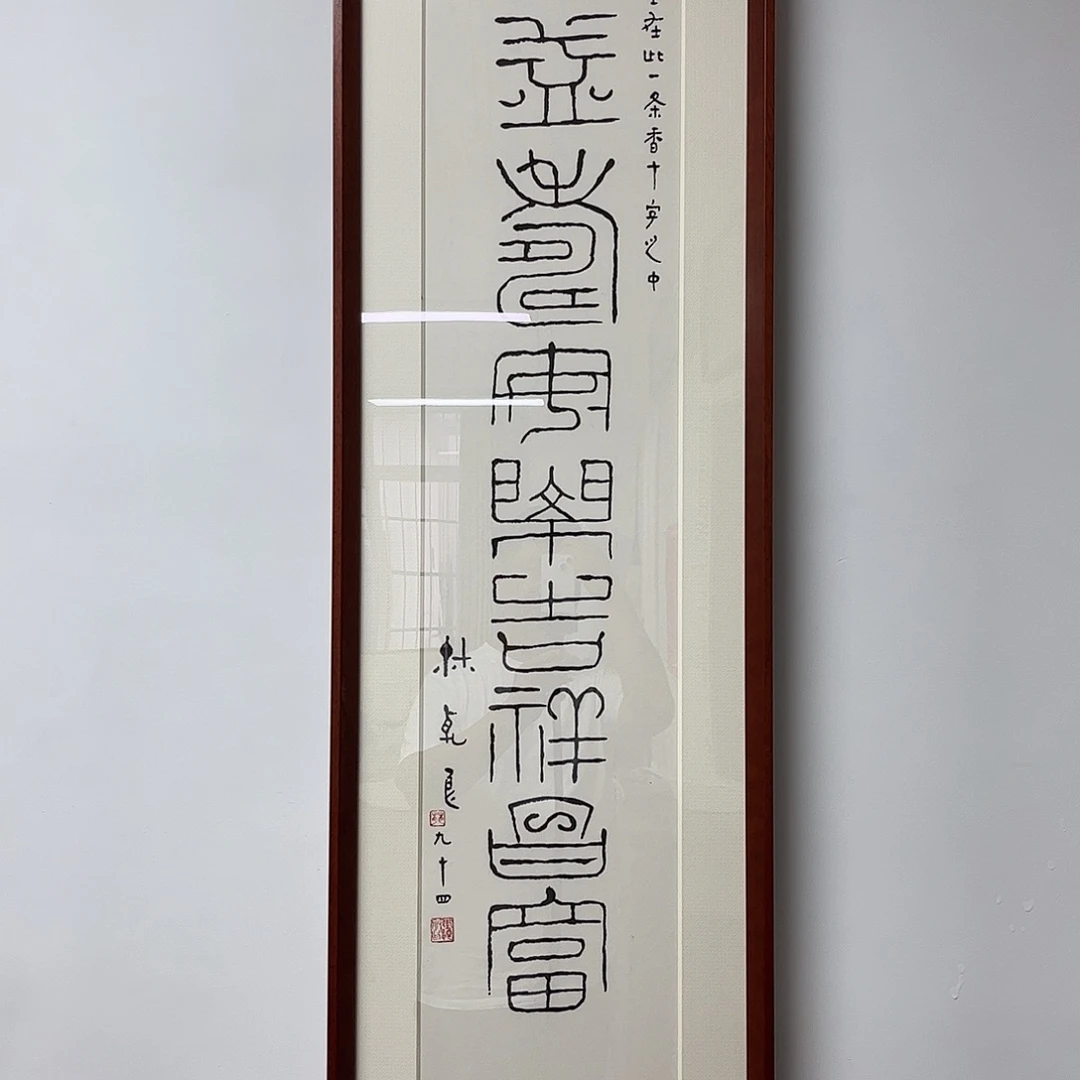 在此一条香十字之中
益壽安樂吉祥昌富
林乾良
九十四